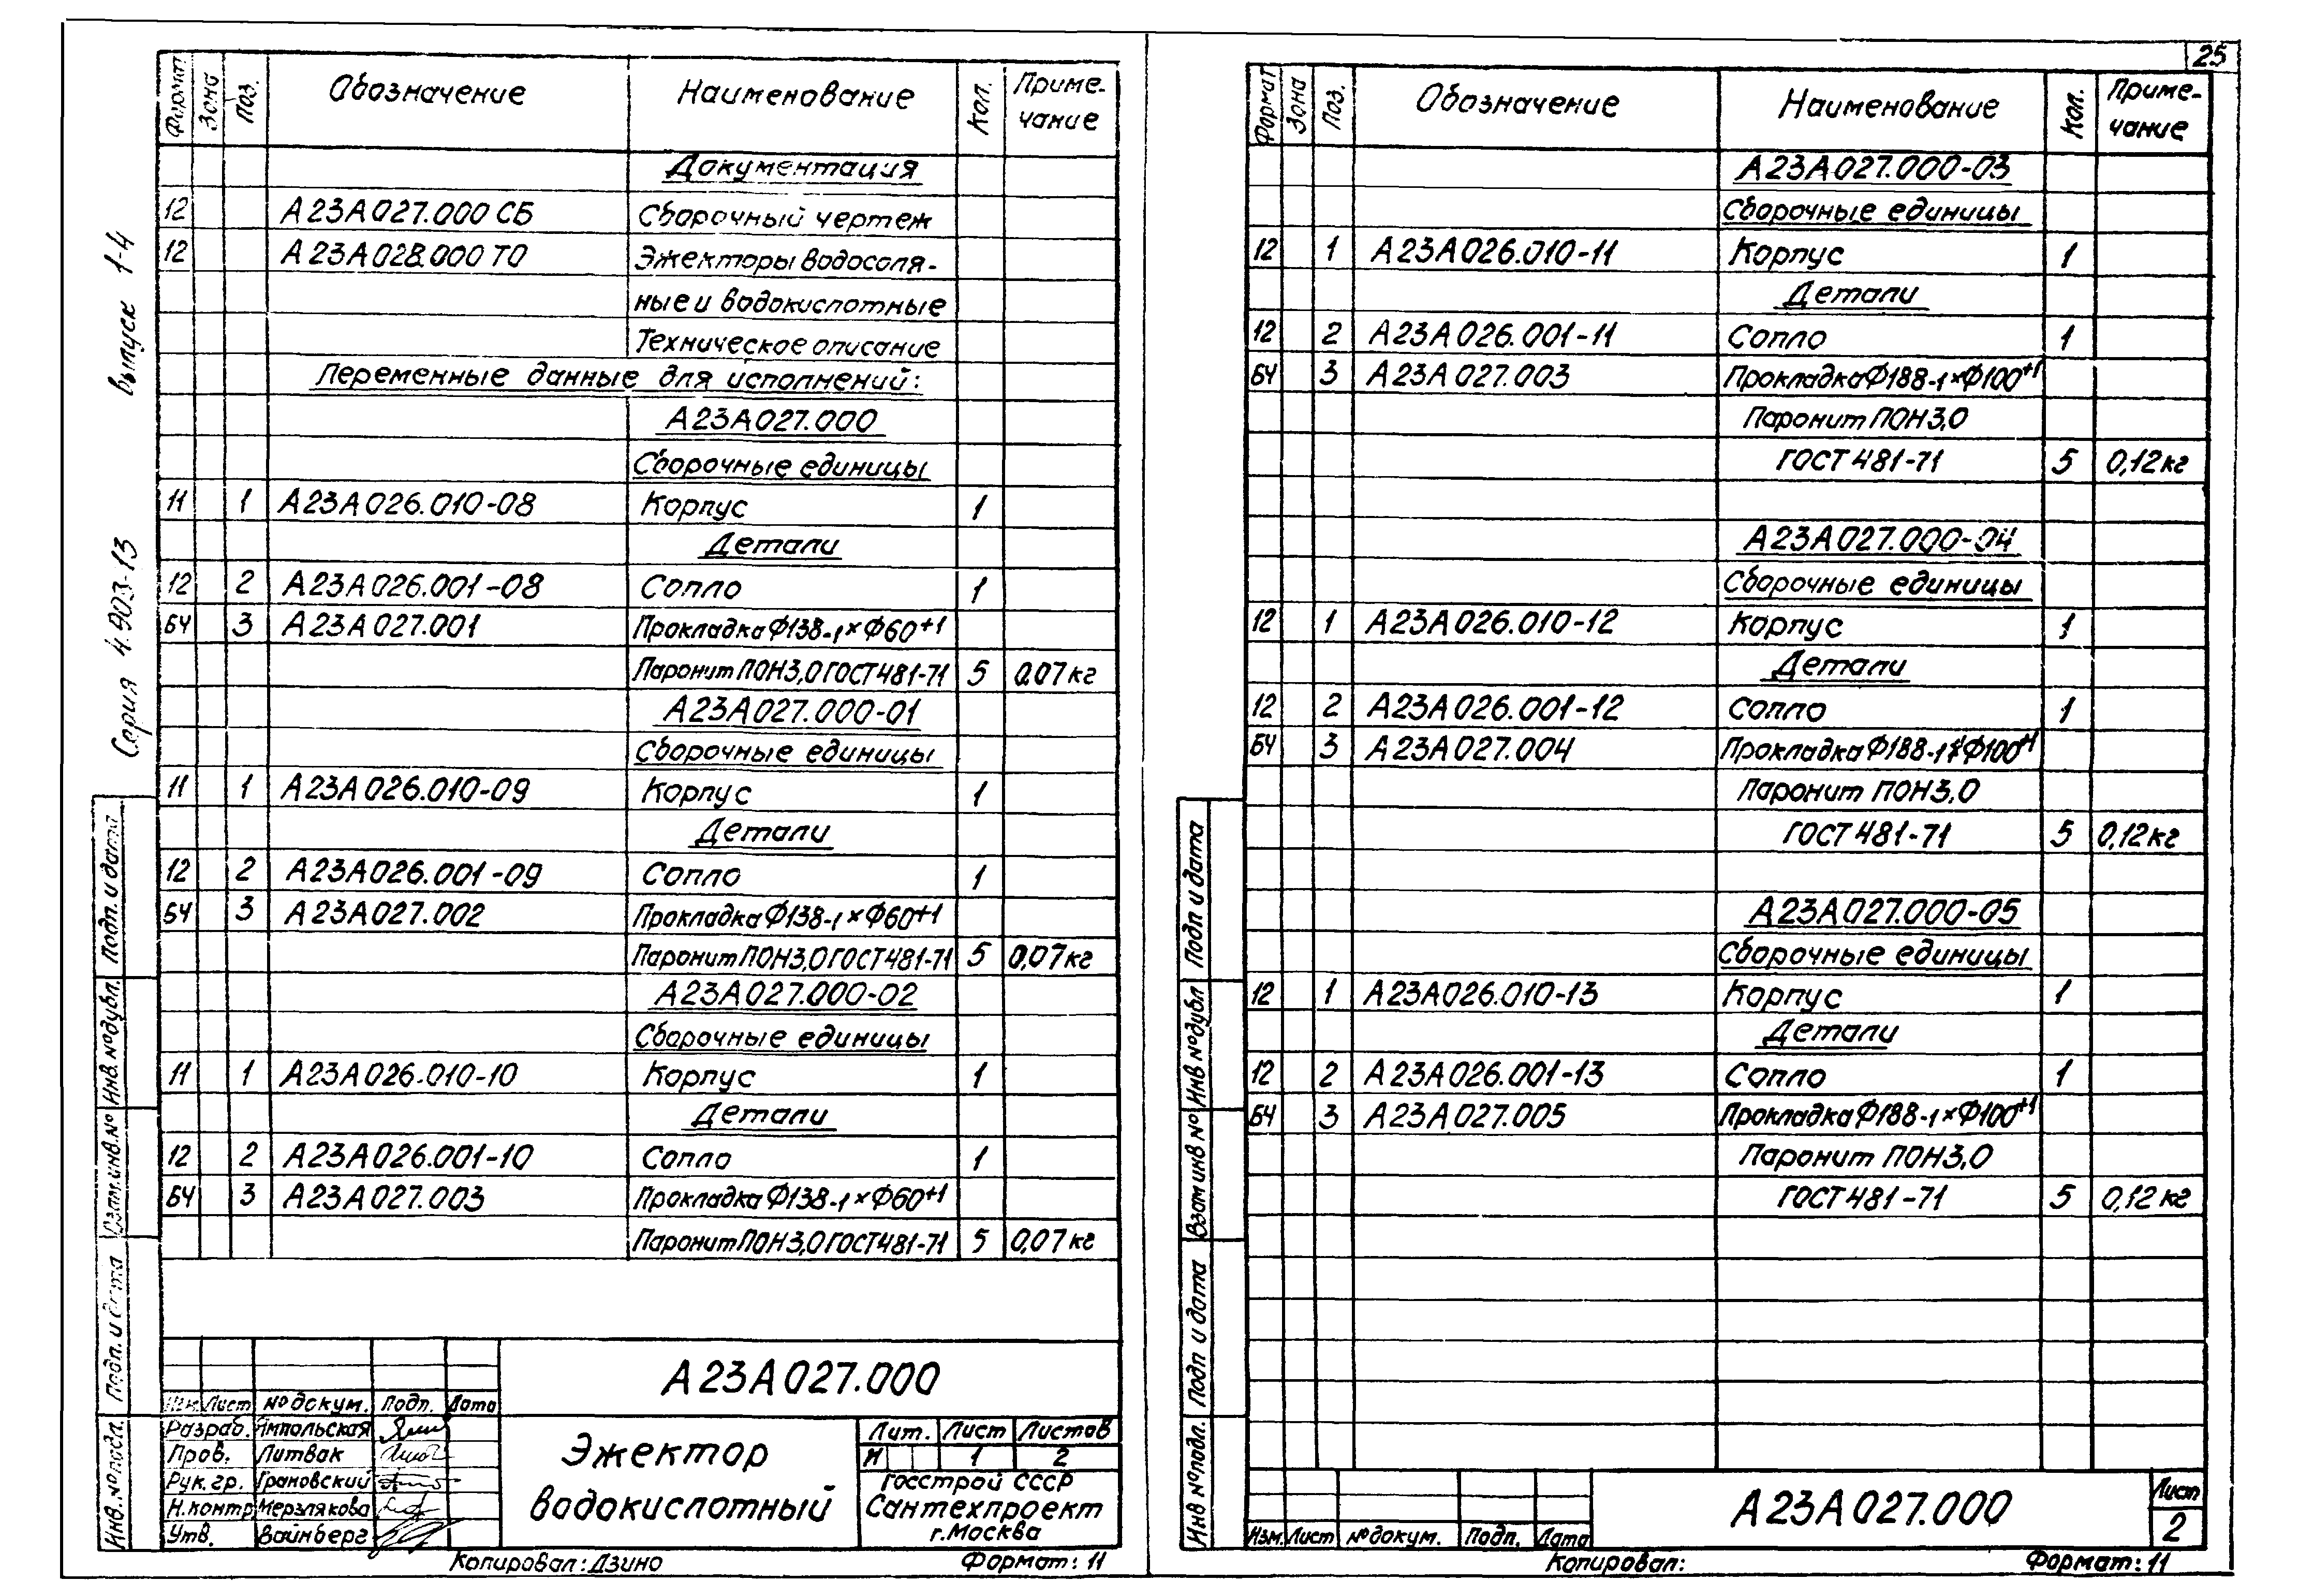 25
Серия 4.903-13 выпуск 1-4
Формат Зона Поз. Обозначение Наименование Кол. Приме-
чание
Документация
12 А23А027.000 СБ Сборочный чертеж
12 А23А028.000 ТО Эжекторы водосоля-
ные и водокислотные
Техническое описание
Переменные данные для исполнений:
А23А027.000
Сборочные единицы
11 1 А23А026.010-08 Корпус 1
Детали
12 2 А23А026.001-08 Сопло 1
БЧ 3 А23А027.001 Прокладка Ф138-1×Ф60+1
Паронит ПОН3,0 ГОСТ 481-71 5 0,07кг
А23А027.000-01
Сборочные единицы
11 1 А23А026.010-09 Корпус 1
Детали
12 2 А23А026.001-09 Сопло 1
БЧ 3 А23А027.002 Прокладка Ф138-1×Ф60+1
Паронит ПОН3,0 ГОСТ 481-71 5 0,07кг
А23А027.000-02
Сборочные единицы
11 1 А23А026.010-10 Корпус 1
Детали
12 2 А23А026.001-10 Сопло 1
БЧ 3 А23А027.003 Прокладка Ф138-1×Ф60+1
Паронит ПОН3,0 ГОСТ 481-71 5 0,07кг
Подп. и дата
Инв. № дубл.
Взам. инв. №
Подп. и дата
Инв. № подл.
А23А027.000
Изм. Лист № докум. Подп. Дата
Разраб. Ямпольская
Пров. Литвак
Рук. гр. Грановский
Н.контр. Мерзлякова
Утв. Вайнберг
Эжектор
водокислотный
Лит. Лист Листов
И 1 2
Госстрой СССР
Сантехпроект
г.Москва
Копировал: Дзино Формат: 11
Формат Зона Поз. Обозначение Наименование Кол. Приме-
чание
А23А027.000-03
Сборочные единицы
12 1 А23А026.010-11 Корпус 1
Детали
12 2 А23А026.001-11 Сопло 1
БЧ 3 А23А027.003 Прокладка Ф188-1×Ф100+1
Паронит ПОН3,0
ГОСТ 481-71 5 0,12кг
А23А027.000-04
Сборочные единицы
12 1 А23А026.010-12 Корпус 1
Детали
12 2 А23А026.001-12 Сопло 1
БЧ 3 А23А027.004 Прокладка Ф188-1×Ф100+1
Паронит ПОН3,0
ГОСТ 481-71 5 0,12кг
А23А027.000-05
Сборочные единицы
12 1 А23А026.010-13 Корпус 1
Детали
12 2 А23А026.001-13 Сопло 1
БЧ 3 А23А027.005 Прокладка Ф188-1×Ф100+1
Паронит ПОН3,0
ГОСТ 481-71 5 0,12кг
Подп и дата
Инв № дубл
Взам инв №
Подп и дата
Инв № подл.
Изм. Лист № докум. Подп. Дата
А23А027.000
Лист
2
Копировал: Формат: 11